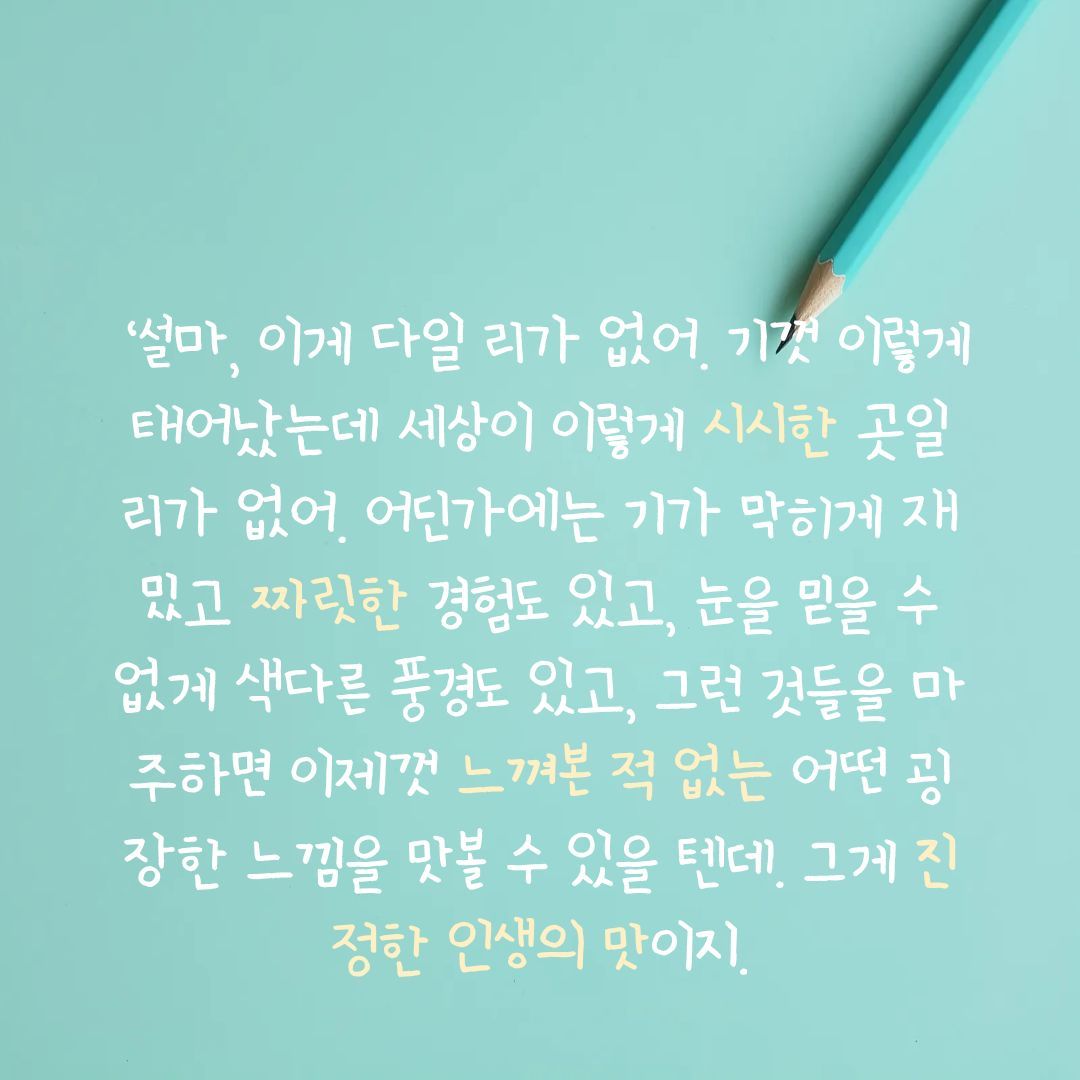 ‘설마, 이게 다일 리가 없어. 기껏 이렇게
태어났는데 세상이 이렇게 시시한 곳일
리가 없어. 어딘가에는 기가 막히게 재
밌고 짜릿한 경험도 있고, 눈을 믿을 수
없게 색다른 풍경도 있고, 그런 것들을 마
주하면 이제껏 느껴본 적 없는 어떤 굉
장한 느낌을 맛볼 수 있을 텐데. 그게 진
정한 인생의 맛이지.